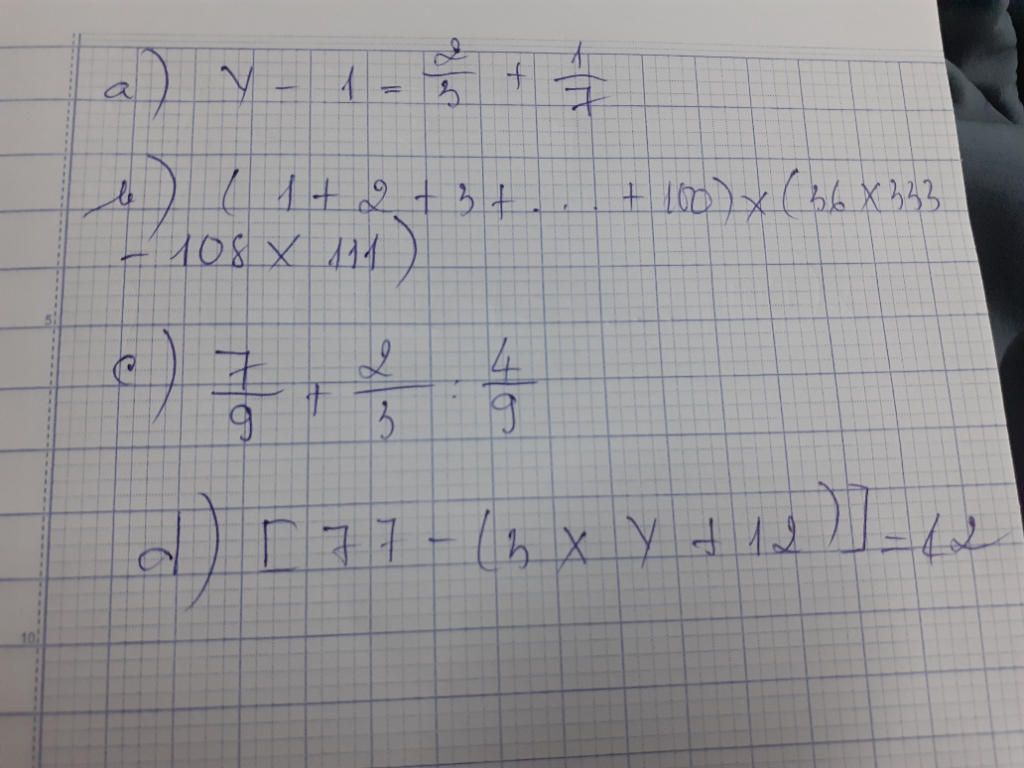 a) Y - 1 = 2/3 + 1/7
b) ( 1 + 2 + 3 + . . . . + 100) x (36 x 333
- 108 x 111)
5
c) 7/9 + 2/3 : 4/9
d) [ 77 - (3 x Y + 12)] =
10